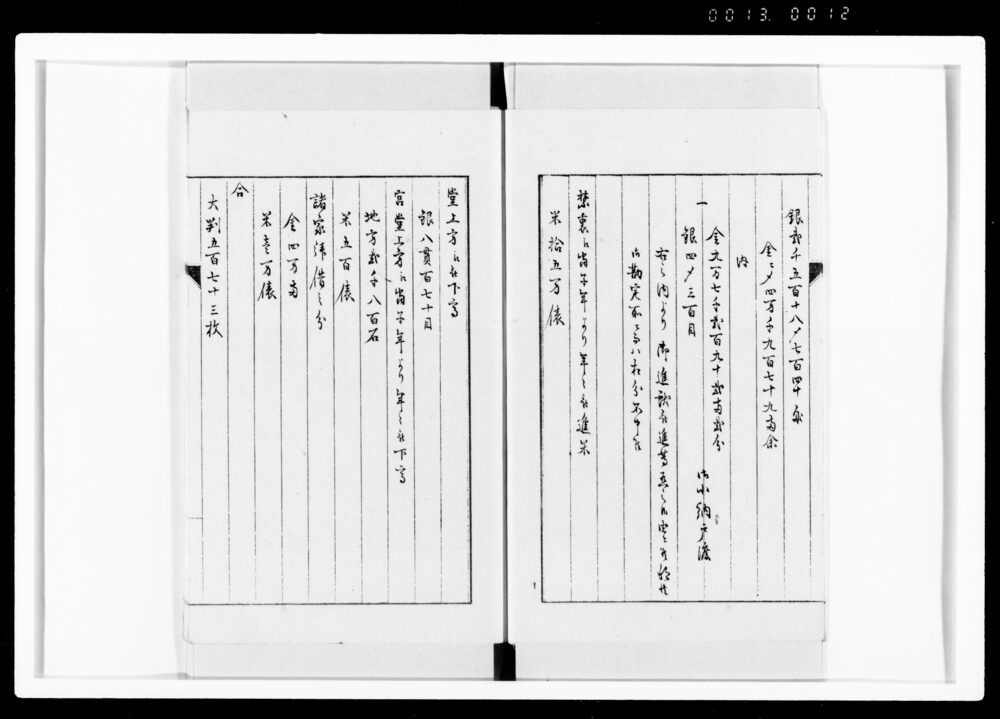 0013. 0012
銀弐千五百十八〆七百四十
金〆四万千九百七十九両余
内
一 金九万七千弐百九十弐両弐分
銀四〆三百目 御小納戸渡
右之内より 御進献被進
御勘定所ニ而ハ相分不申候
禁裏江当子年より年々被進米
米拾五万俵
堂上方江被下高
銀八貫百七十目
宮堂上方江当子年より年々被下高
地方弐千八百石
米五百俵
諸家拝借之分
金四万両
米壱万俵
合
大判五百七十三枚